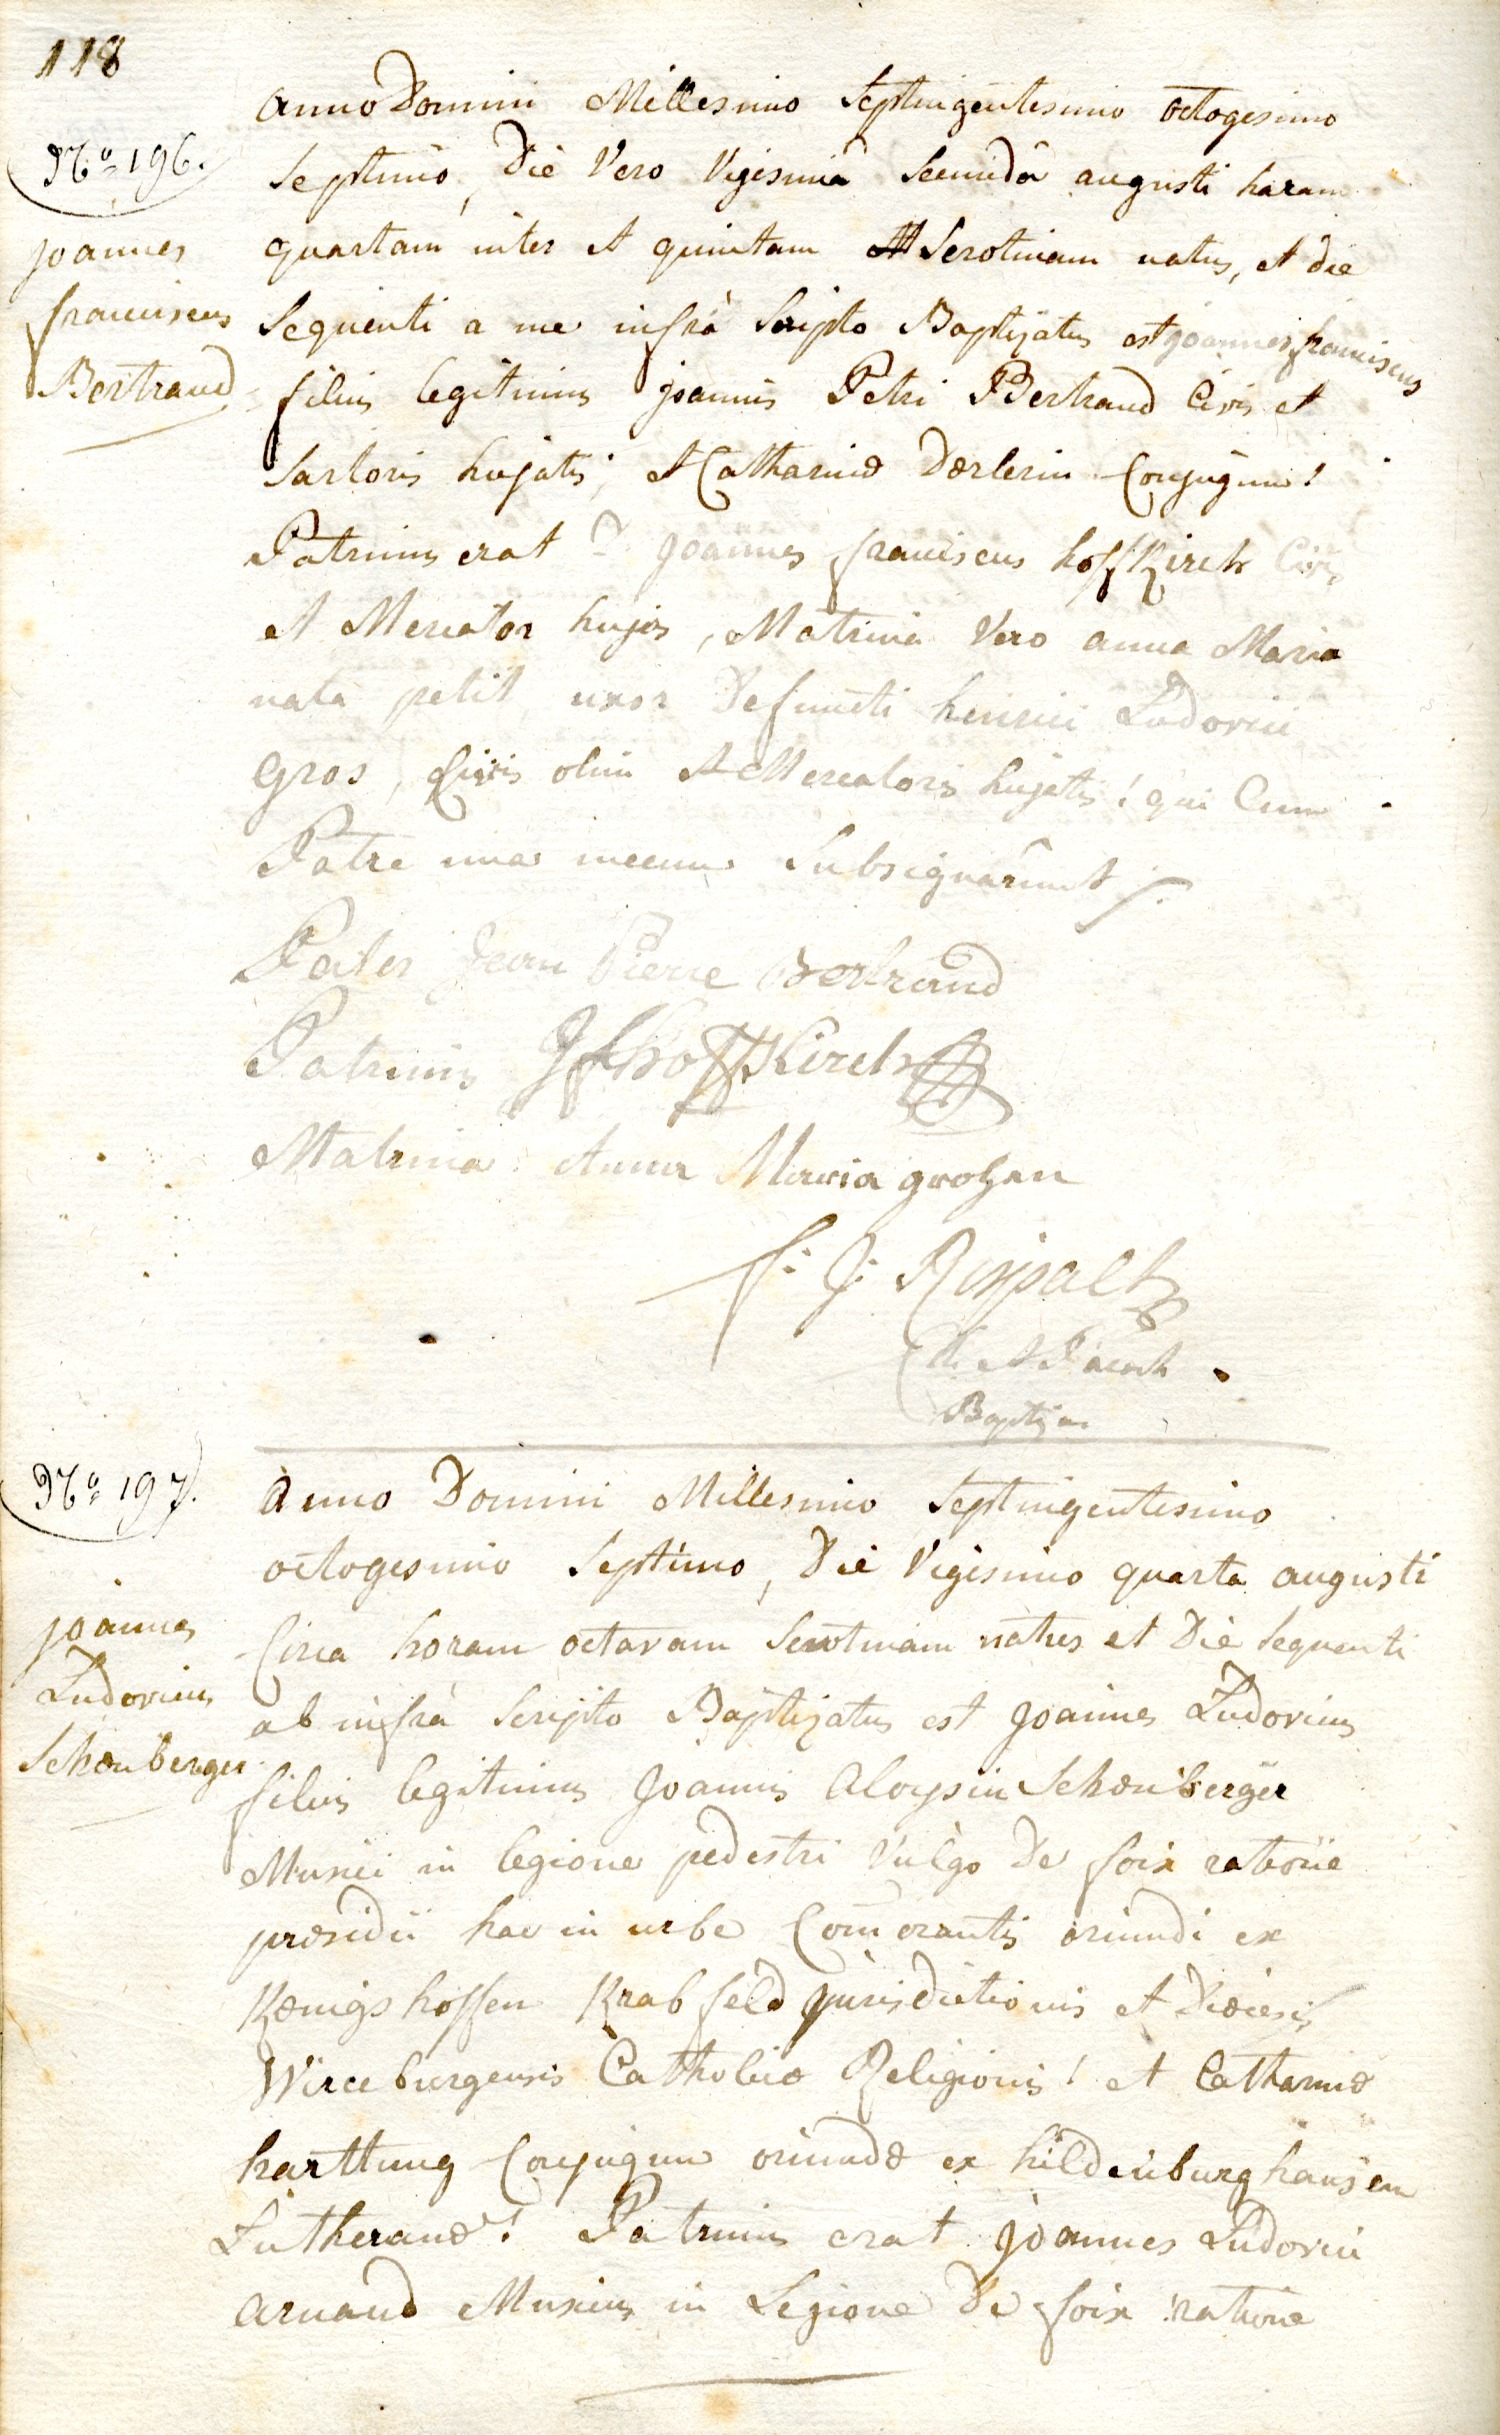 118
N.º 196.
joannes
franciscus
Bertrand
anno Domini Millesimo Septingentesimo octogesimo
Septimo, Die Vero Vigesimâ Secundâ augusti haram
quartam inter et quintam Serotinam natus, et die
Sequenti a me infrà Scripto Baptizatus est joannes franciscus
filius legitimus joannis Petri Bertrand Civis et
Sartoris hujatis, et Catharinæ Dœrlerin Conjugum!
Patrinus erat joannes franciscus hoffKirch Civis
et Mercator hujas, Matrina Vero anna Maria
nata petit uxor Defuncti henrici Ludovici
Gros, Civis olim et Mercatoris hujatis! qui Cum
Patre una mecum Subsignârunt
Pater Jean Pierre Bertrand
Patrinus JfhoffKirch
Matrina Anna Maria grohsen
f: J: Rispalt
Baptizans
N.º 197.
joannes
Ludovicus
Schœnberger
Anno Domini Millesimo Septingentesimo
octogesimo Septimo, Die Vigesimo quarta augusti
Circa horam octavam Serotinam natus et Die Sequenti
ab infrà Scripto Baptizatus est joannes Ludovicus
filius legitimus joannis Aloysii Schœnberger
Musici in legione pedestri Vulgo De foix ratione
præsidii hac in urbe Com̄orantis oriundi ex
Kœnigshoffen Krabfeld jurisdictionis et Diœcesis
Wirceburgensis Catholicæ Religionis! et Catharinæ
harttung Conjugum oriundæ ex hildenburghausen
Lutheranæ! Patrinus erat joannes Ludovici
arnaud Musicus in Legione De foix ratione